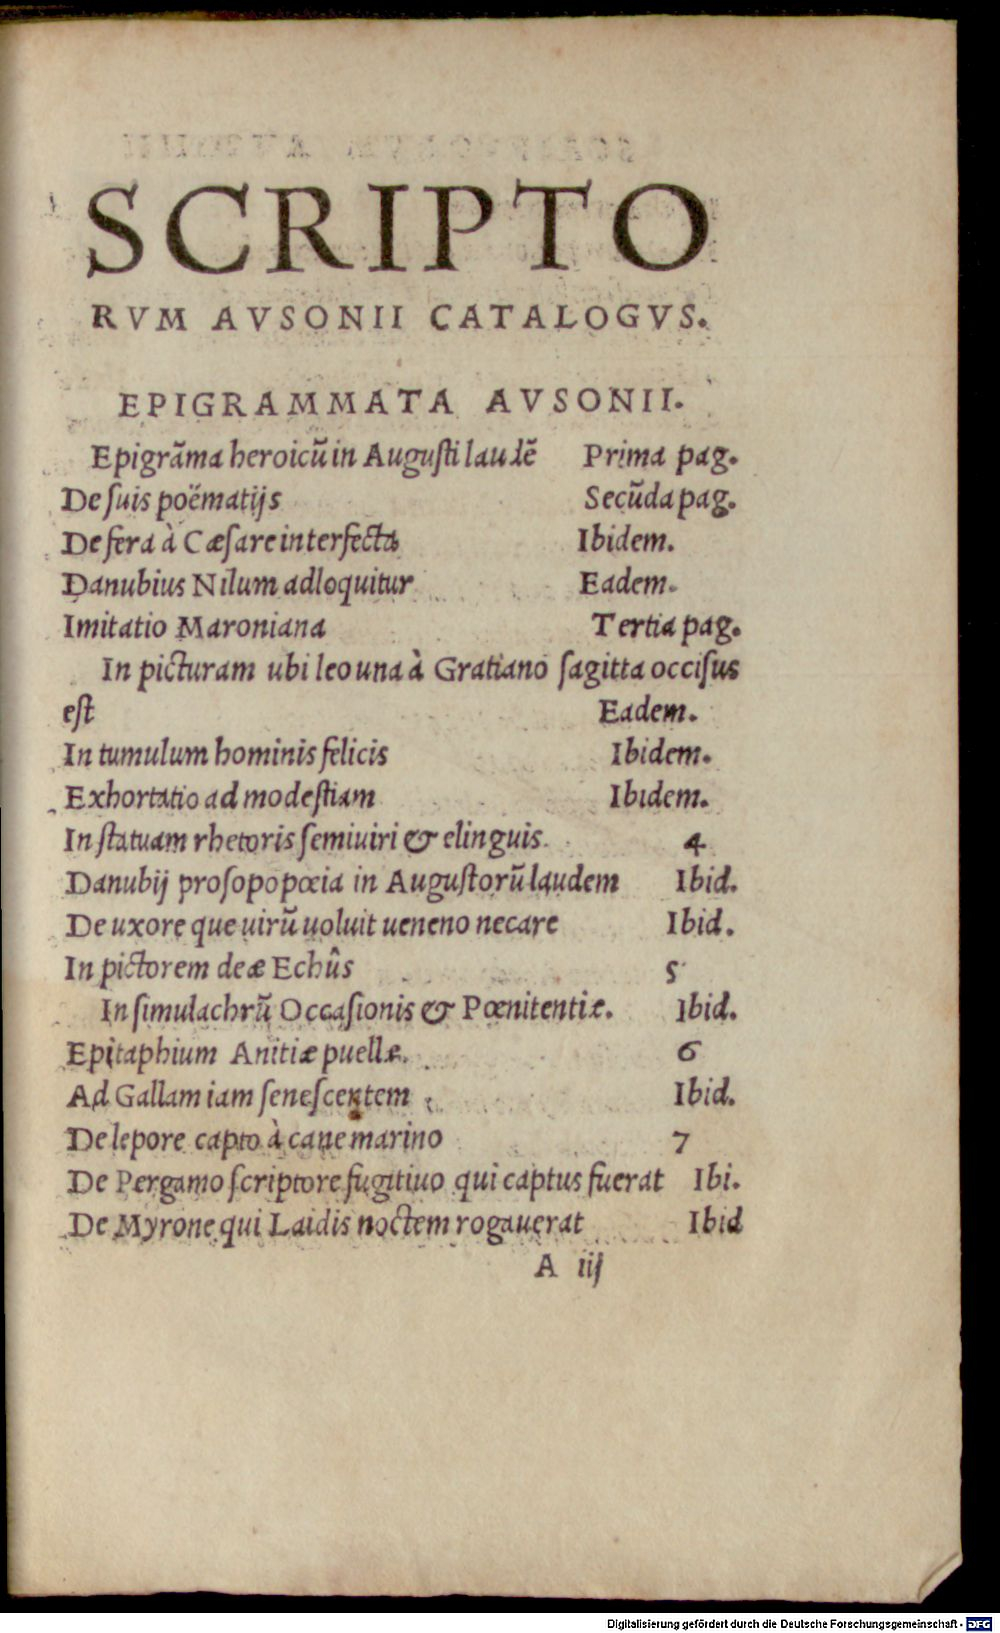 SCRIPTO
RVM AVSONII CATALOGVS.
EPIGRAMMATA AVSONII.
Epigrãma heroicũ in Augusti laudẽ Prima pag.
De suis poëmatijs Secũda pag.
De fera à Cæsare interfecta Ibidem.
Danubius Nilum adloquitur Eadem.
Imitatio Maroniana Tertia pag.
In picturam ubi leo una à Gratiano sagitta occisus
est Eadem.
In tumulum hominis felicis Ibidem.
Exhortatio ad modestiam Ibidem.
In statuam rhetoris semiuiri & elinguis. 4
Danubij prosopopœia in Augustorũ laudem Ibid.
De uxore que uirũ uoluit ueneno necare Ibid.
In pictorem deæ Echûs 5
In simulachrũ Occasionis & Pœnitentiæ. Ibid.
Epitaphium Anitiæ puellæ. 6
Ad Gallam iam senescentem Ibid.
De lepore capto à cane marino 7
De Pergamo scriptore fugitiuo qui captus fuerat Ibi.
De Myrone qui Laidis noctem rogauerat Ibid
A iij
Digitalisierung gefördert durch die Deutsche Forschungsgemeinschaft - DFG